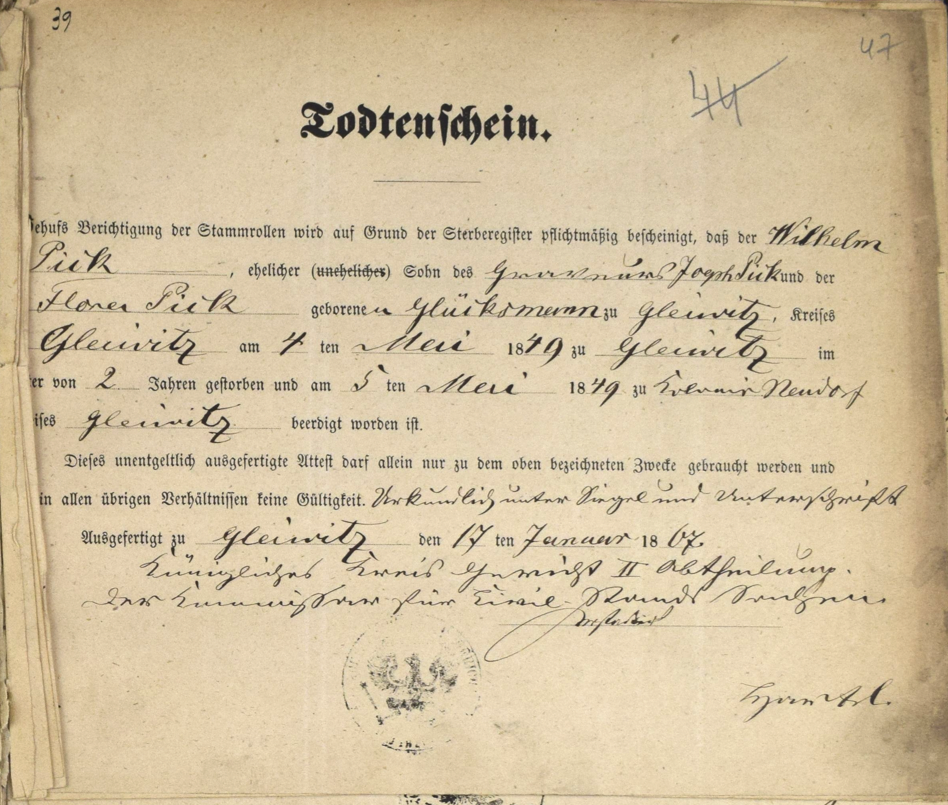 39
47
44
Todtenschein.
Behufs Berichtigung der Stammrollen wird auf Grund der Sterberegister pflichtmäßig bescheinigt, daß der Wilhelm
Pick, ehelicher (unehelicher) Sohn des Graveurs Joseph Pick und der
Flora Pick geborenen Glücksmann zu Gleiwitz, Kreises
Gleiwitz am 4 ten Mai 1849 zu Gleiwitz im
ter von 2 Jahren gestorben und am 5 ten Mai 1849 zu Neudorf
ises Gleiwitz beerdigt worden ist.
Dieses unentgeltlich ausgefertigte Attest darf allein nur zu dem oben bezeichneten Zwecke gebraucht werden und
in allen übrigen Verhältnissen keine Gültigkeit. Urkundlich unter Siegel und Unterschrift
Ausgefertigt zu Gleiwitz den 17 ten Januar 1867.
Königliches Kreis Gericht II Abtheilung.
Der Kommissar für Civil Stands Sachen.